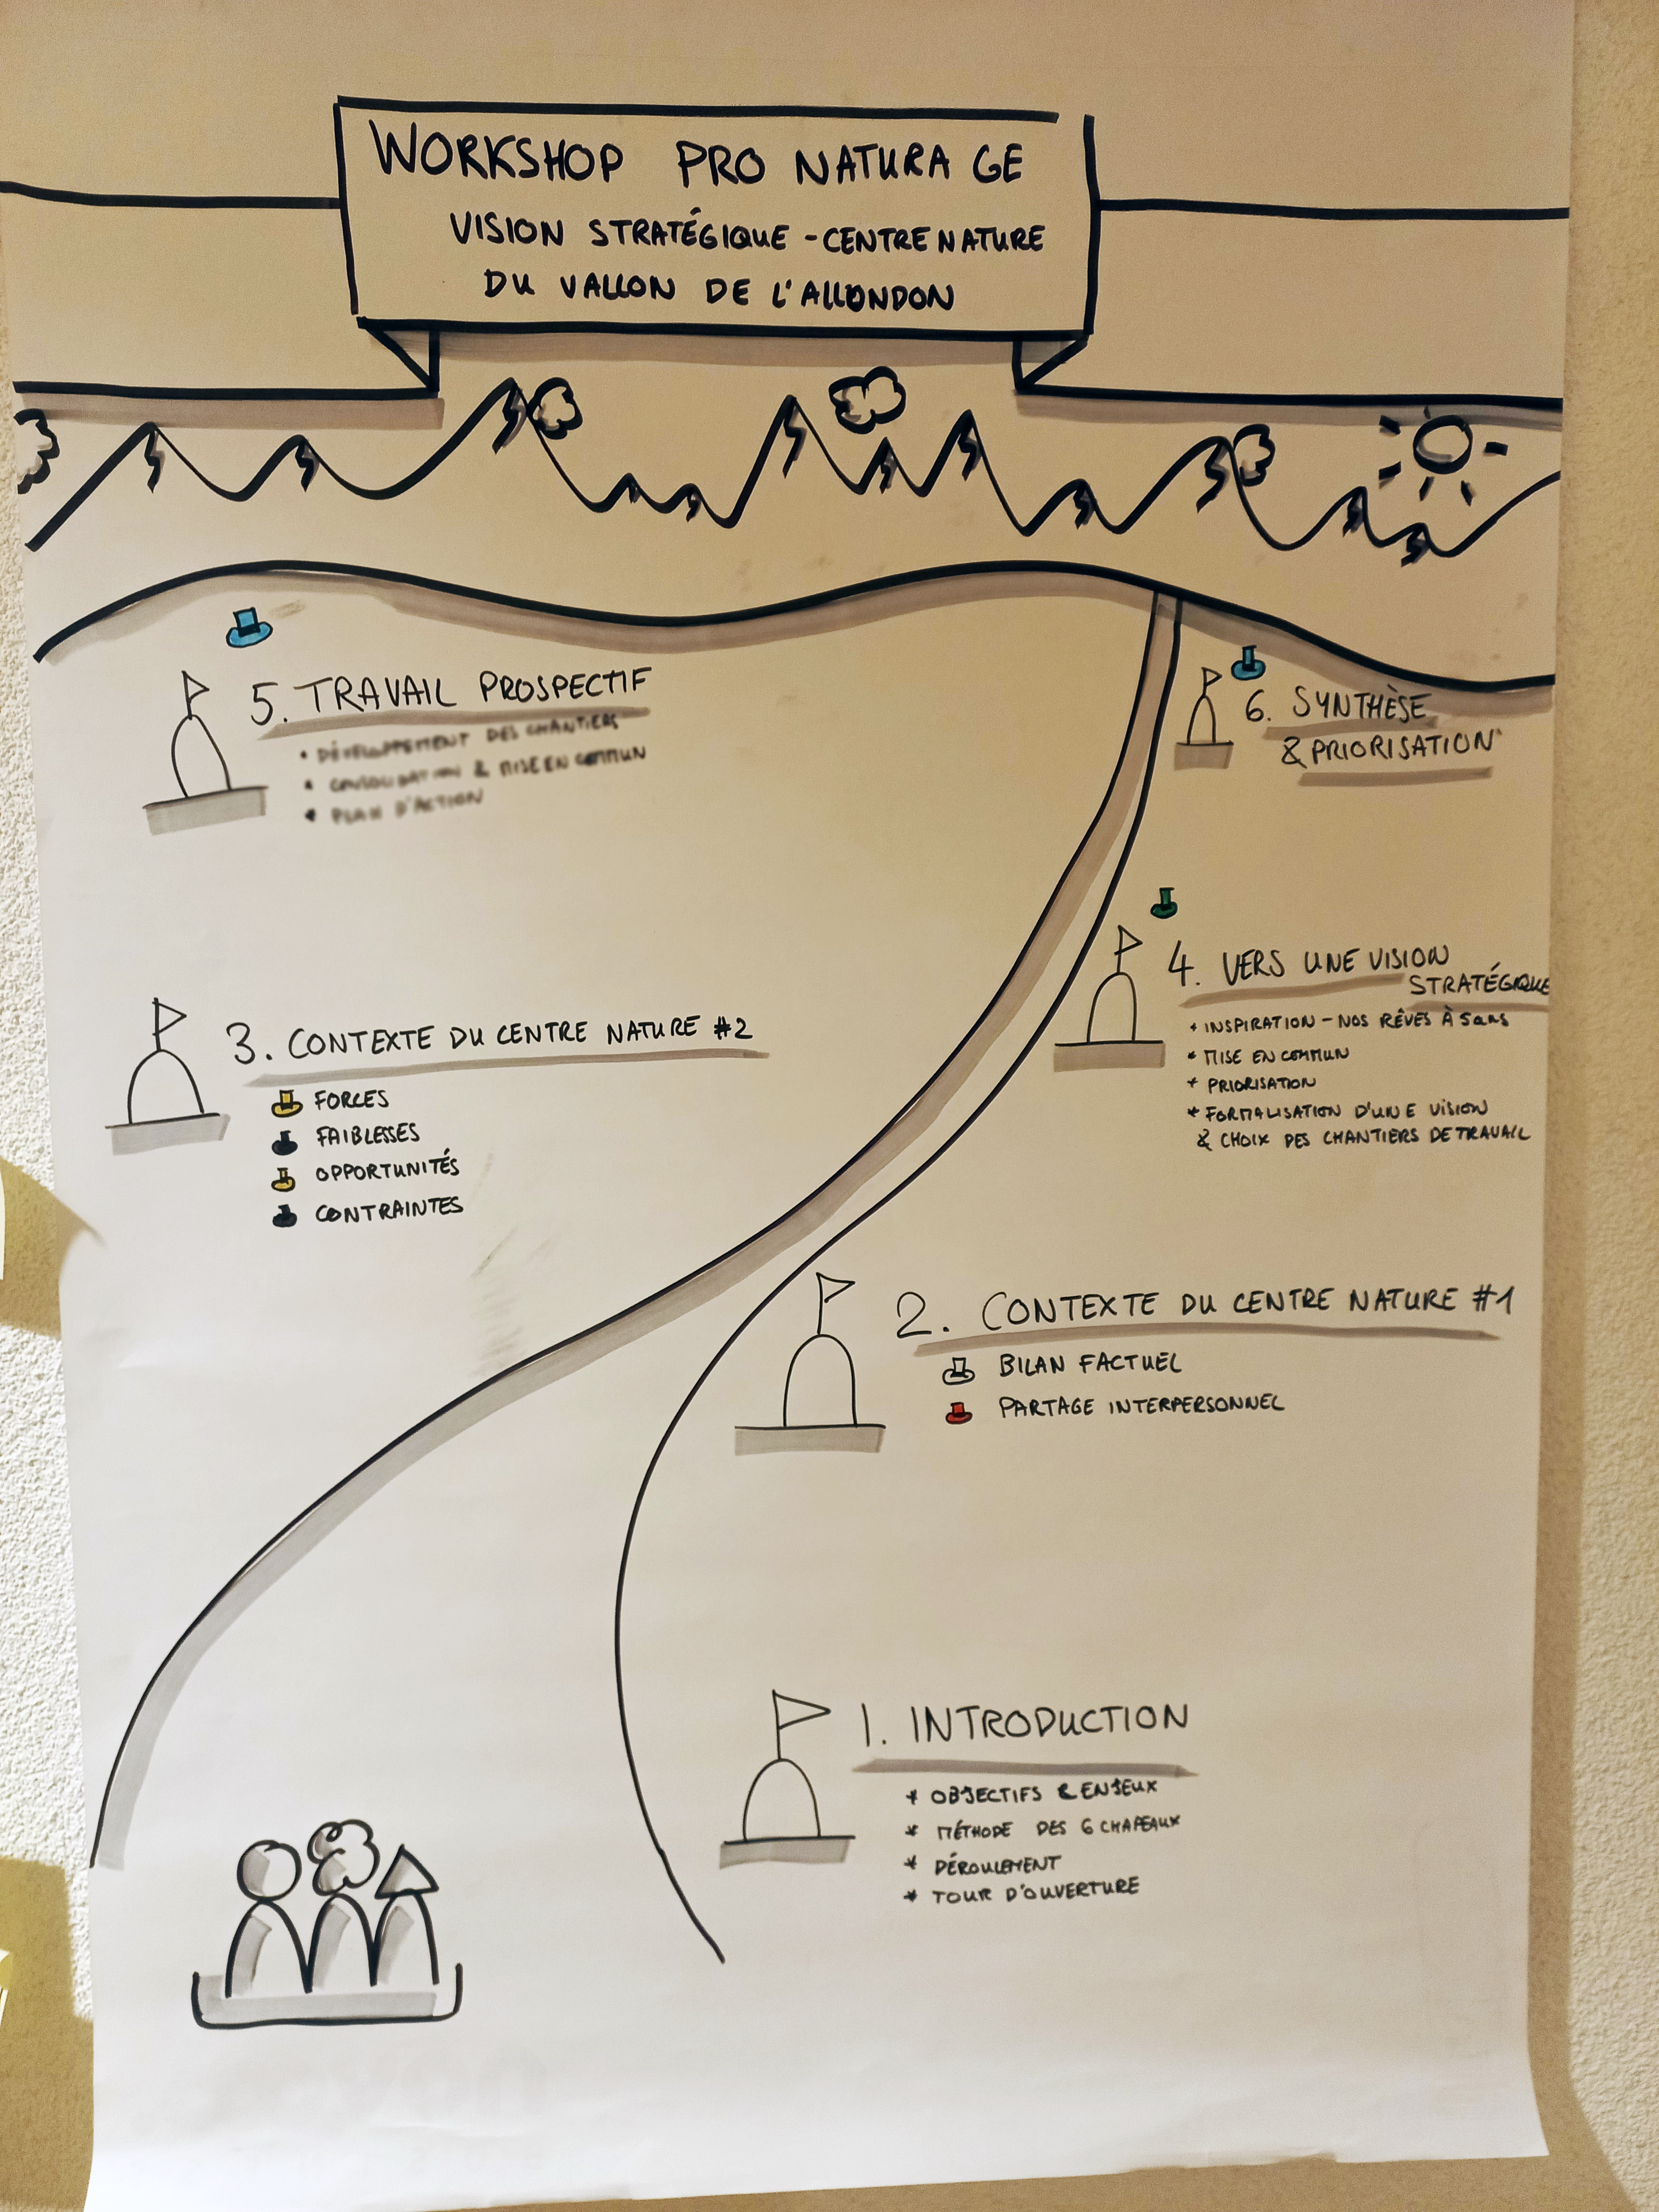 WORKSHOP PRO NATURA GE
VISION STRATÉGIQUE - CENTRE NATURE
DU VALLON DE L'ALLONDON
5. TRAVAIL PROSPECTIF
• DÉVELOPPEMENT DES CHANTIERS
• CONSOLIDATION & MISE EN COMMUN
• PLAN D'ACTION
6. SYNTHÈSE
& PRIORISATION
4. VERS UNE VISION
STRATÉGIQUE
* INSPIRATION - NOS RÊVES À 5 ans
* MISE EN COMMUN
* PRIORISATION
* FORMALISATION D'UNE VISION
& CHOIX DES CHANTIERS DE TRAVAIL
3. CONTEXTE DU CENTRE NATURE #2
FORCES
FAIBLESSES
OPPORTUNITÉS
CONTRAINTES
2. CONTEXTE DU CENTRE NATURE #1
BILAN FACTUEL
PARTAGE INTERPERSONNEL
1. INTRODUCTION
* OBJECTIFS & ENJEUX
* MÉTHODE DES 6 CHAPEAUX
* DÉROULEMENT
* TOUR D'OUVERTURE